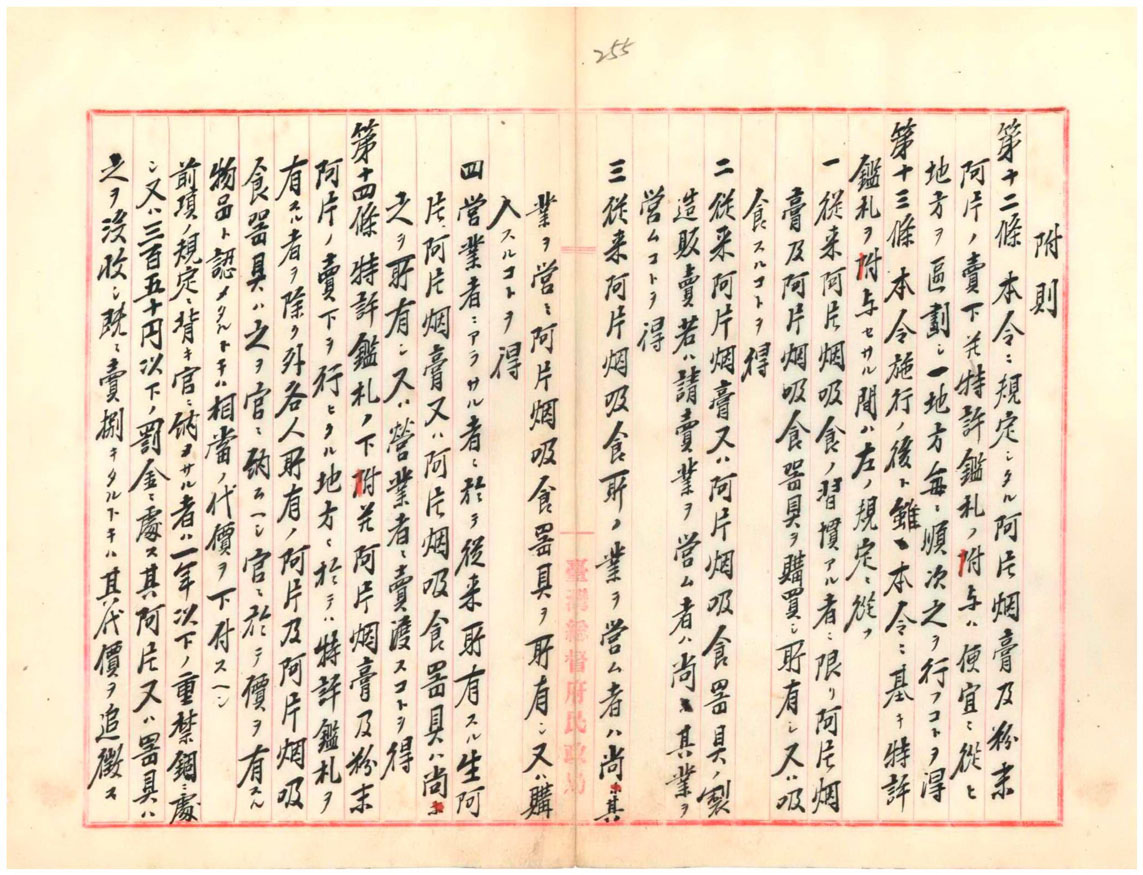 255
附則
第十二條 本令ニ規定シタル阿片烟膏及粉末
阿片ノ賣下並特許鑑札ノ附与ハ便宜ニ從ヒ
地方ヲ區劃シ一地方每ニ順次之ヲ行フコトヲ得
第十三條 本令施行ノ後ト雖モ本令ニ基キ特許
鑑札ヲ附与セサル間ハ左ノ規定ニ從フ
一從来阿片烟吸食ノ習慣アル者ニ限リ阿片烟
膏及阿片烟吸食器具ヲ購買シ所有シ又ハ吸
食スルコトヲ得
二從来阿片烟膏又ハ阿片烟吸食器具ノ製
造販賣若ハ請賣業ヲ営ム者ハ尚其業ヲ
営ムコトヲ得
三從来阿片烟吸食所ノ業ヲ営ム者ハ尚ホ其
臺灣總督府民政局
業ヲ営ミ阿片烟吸食器具ヲ所有シ又ハ購
入スルコトヲ得
四営業者ニアラサル者ニ於テ從来所有スル生阿
片、阿片烟膏又ハ阿片烟吸食器具ハ尚ホ
之ヲ所有シ又ハ營業者ニ賣渡スコトヲ得
第十四條 特許鑑札ノ下附並阿片烟膏及粉末
阿片ノ賣下ヲ行ヒタル地方ニ於テハ特許鑑札ヲ
有スル者ヲ除ク外各人所有ノ阿片及阿片烟吸
食器具ハ之ヲ官ニ納ムヘシ官ニ於テ價ヲ有スル
物品ト認メタルトキハ相當ノ代價ヲ下付スヘシ
前項ノ規定ニ背キ官ニ納メサル者ハ一年以下ノ重禁錮ニ處
シ又ハ三百五十円以下ノ罰金ニ處ス其阿片又ハ器具ハ
之ヲ没收シ既ニ賣捌キタルトキハ其代價ヲ追徵ス